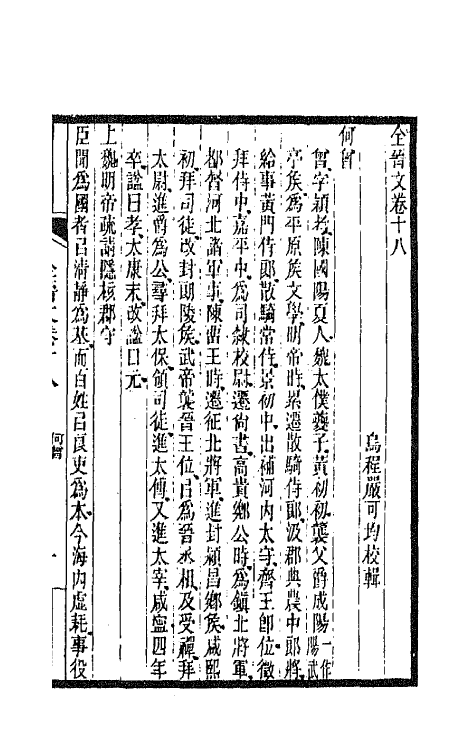 全晉文卷十八
烏程嚴可均校輯
何曾
曾字穎考陳國陽夏人魏太僕夔子黃初初襲父爵成陽一作陽武
亭矦爲平原矦文學明帝時累遷散騎侍郎汲郡典農中郎將
給事黃門侍郎散騎常侍景初中出補河內太守齊王卽位徵
拜侍中嘉平中爲司隸校尉遷尚書高貴鄉公時爲鎮北將軍
都督河北諸軍事陳畱王時遷征北將軍進封潁昌鄉矦咸熙
初拜司徒改封朗陵矦武帝襲晉王位㠯爲晉丞相及受禪拜
太尉進爵爲公尋拜太保領司徒進太傅又進太宰咸寧四年
卒謚曰孝太康末改謚曰元
上魏明帝疏請隱核郡守
臣聞爲國者㠯清靜爲基而百姓㠯良吏爲本今海內虛耗事役
全晉文卷十八
何曾
一